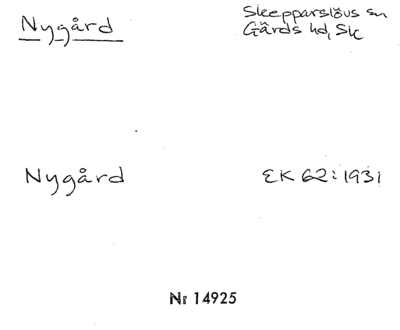 Nygård
Skepparslövs sn
Gärds hd, Sk
Nygård
EK 62:1931
Nr 14925